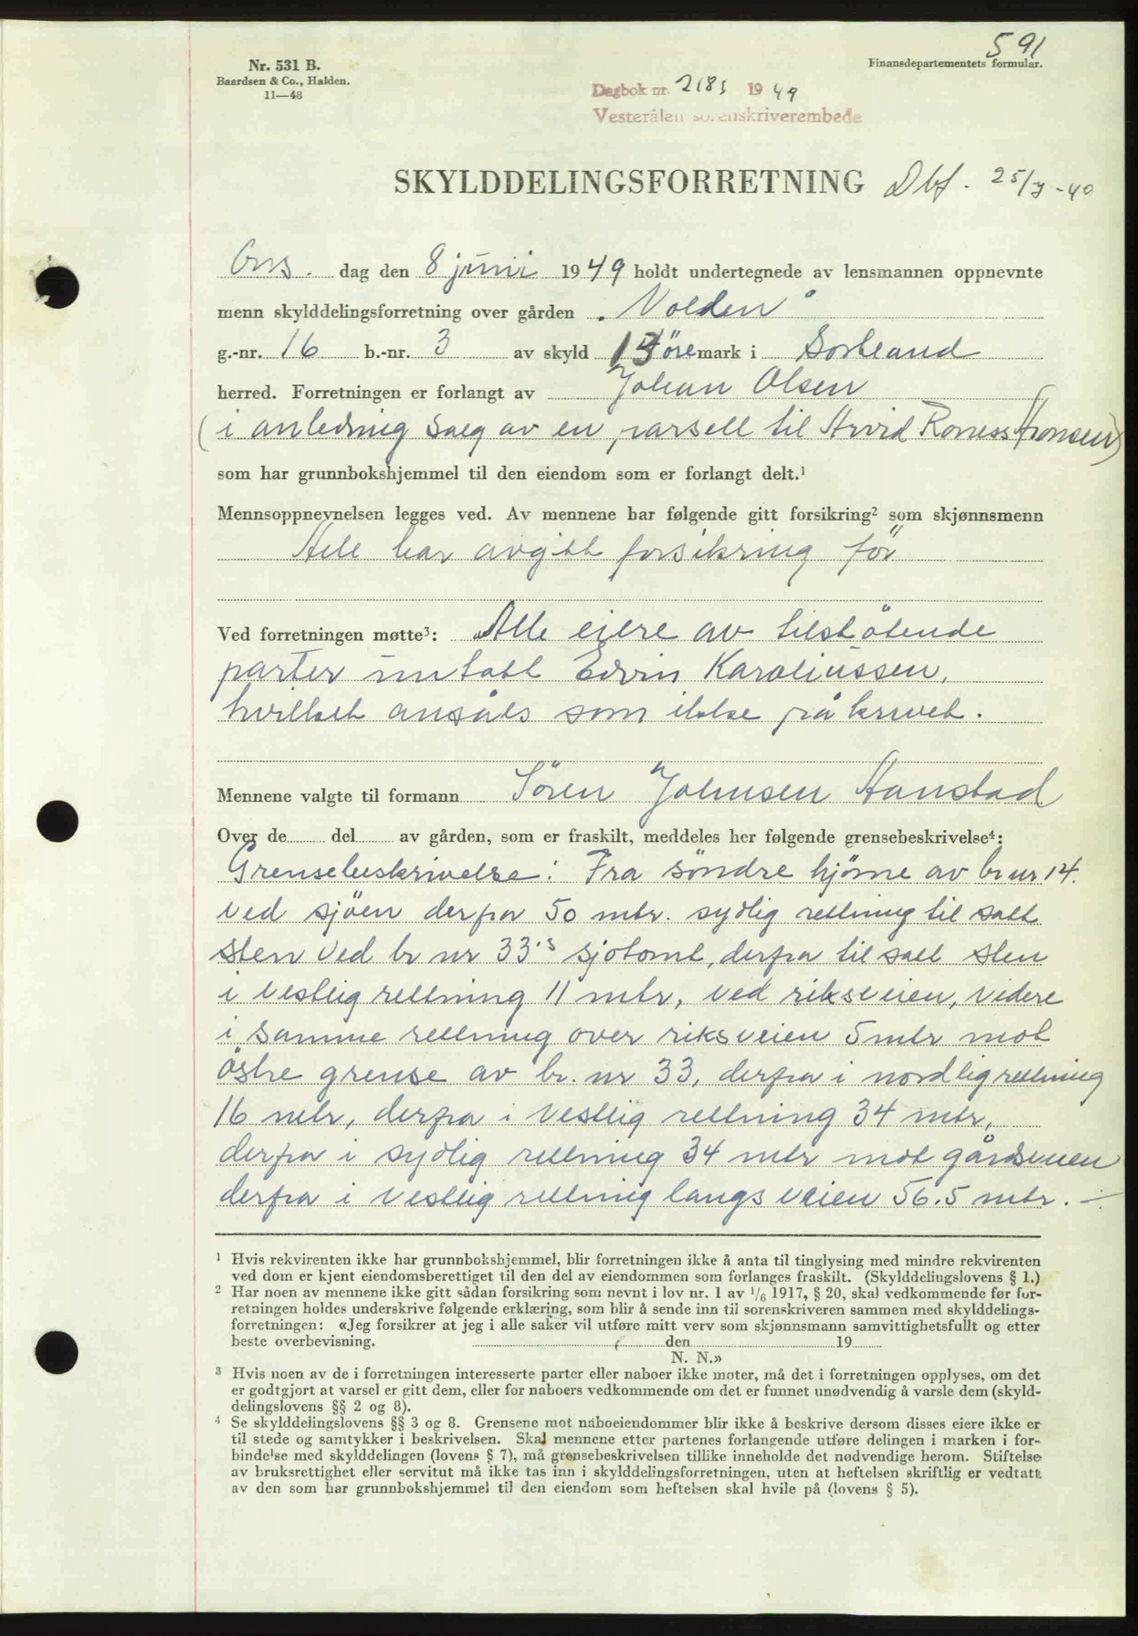 591
Nr. 531 B.
Baardsen & Co., Halden.
11—48
Finansdepartementets formular.
Dagbok nr. 2183 1949
Vesterålen sorenskriverembede
SKYLDDELINGSFORRETNING Dbf. 25/7-40
Ons. dag den 8 juni 1949 holdt undertegnede av lensmannen oppnevnte
menn skylddelingsforretning over gården „Volden"
g.-nr. 16 b.-nr. 3 av skyld öre mark i Sortland
herred. Forretningen er forlangt av Johan Olsen
(i anledning salg av en parsell til Arvid Roness Aronsen)
som har grunnbokshjemmel til den eiendom som er forlangt delt.¹
Mennsoppnevnelsen legges ved. Av mennene har følgende gitt forsikring² som skjønnsmenn
Alle har avgitt forsikring för
Ved forretningen møtte³: Alle eiere av tilstötende
parter unntatt Edvin Karoliussen,
hvilket ansåes som ikke påkrevet.
Mennene valgte til formann Sören Johnsen Hanstad
Over de del av gården, som er fraskilt, meddeles her følgende grensebeskrivelse⁴:
Grensebeskrivelse: Fra söndre hjörne av br nr 14.
ved sjöen derfra 50 mtr. sydlig rettning til satt
sten ved br nr 33's sjötomt, derfra til satt sten
i vestlig rettning 11 mtr, ved riksveien, videre
i samme rettning over riksveien 5 mtr mot
östre grense av br. nr 33, derfra i nordlig rettning
16 mtr, derfra i vestlig rettning 34 mtr,
derfra i sydlig rettning 34 mtr mot gårdsveien
derfra i vestlig rettning langs veien 56.5 mtr. —
¹ Hvis rekvirenten ikke har grunnbokshjemmel, blir forretningen ikke å anta til tinglysing med mindre rekvirenten
ved dom er kjent eiendomsberettiget til den del av eiendommen som forlanges fraskilt. (Skylddelingslovens § 1.)
² Har noen av mennene ikke gitt sådan forsikring som nevnt i lov nr. 1 av 1/6 1917, § 20, skal vedkommende før for-
retningen holdes underskrive følgende erklæring, som blir å sende inn til sorenskriveren sammen med skylddelings-
forretningen: «Jeg forsikrer at jeg i alle saker vil utføre mitt verv som skjønnsmann samvittighetsfullt og etter
beste overbevisning. , den 19
N. N.»
³ Hvis noen av de i forretningen interesserte parter eller naboer ikke møter, må det i forretningen opplyses, om det
er godtgjort at varsel er gitt dem, eller for naboers vedkommende om det er funnet unødvendig å varsle dem (skyld-
delingslovens §§ 2 og 8).
⁴ Se skylddelingslovens §§ 3 og 8. Grensene mot naboeiendommer blir ikke å beskrive dersom disses eiere ikke er
til stede og samtykker i beskrivelsen. Skal mennene etter partenes forlangende utføre delingen i marken i for-
bindelse med skylddelingen (lovens § 7), må grensebeskrivelsen tillike inneholde det nødvendige herom. Stiftelse
av bruksrettighet eller servitut må ikke tas inn i skylddelingsforretningen, uten at heftelsen skriftlig er vedtatt
av den som har grunnbokshjemmel til den eiendom som heftelsen skal hvile på (lovens § 5).